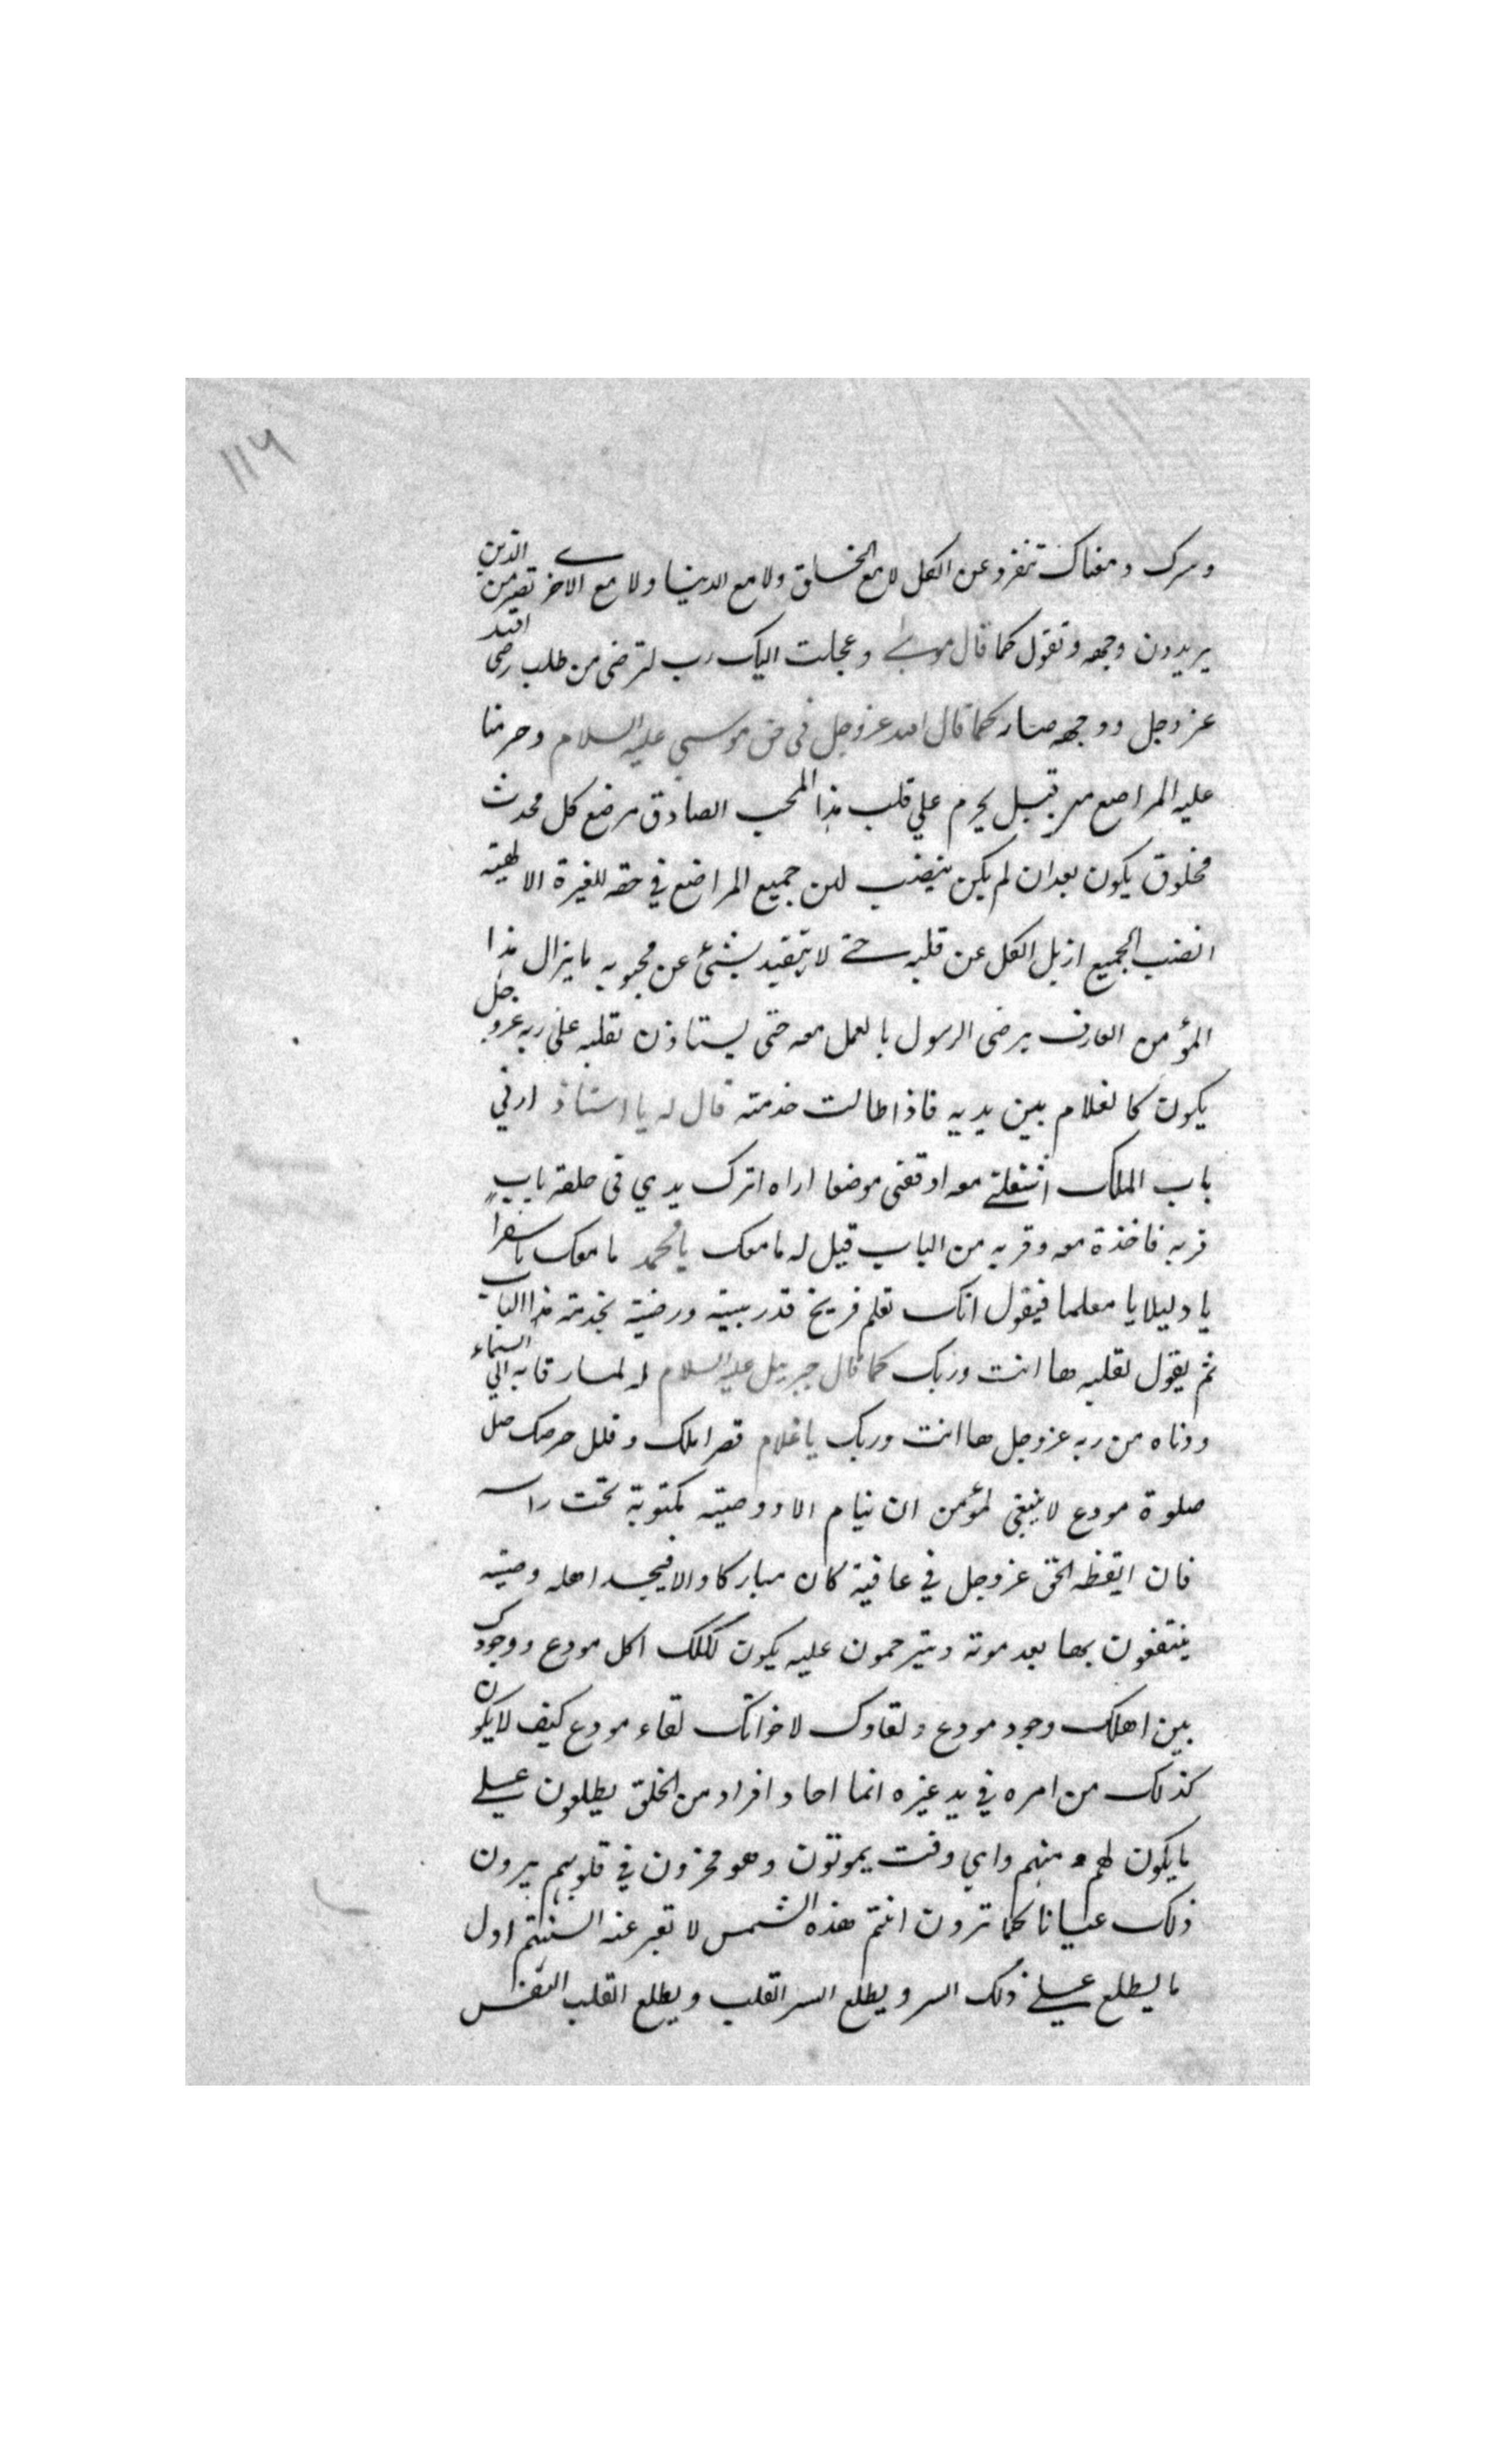 ١١٦
وسرك ومغناك تنفرد عن الكل لا مع الخلق ولا مع الدنيا ولا مع الاخرى تصير من الذين
يريدون وجهه وتقول كما قال موسى وعجلت اليك رب لترضى من طلب رضى الله
عز وجل ووجهه صار كما قال الله عز وجل في حق موسى عليه السلام وحرمنا
عليه المراضع من قبل يحرم علي قلب هذا المحب الصادق مرضع كل محدث
مخلوق يكون بعد ان لم يكن ينضب لبن جميع المراضع في حقه للغيرة الالهية
انضب الجميع ازيل الكل عن قلبه حتى لا يتقيد بشئ عن محبوبه ما يزال هذا
المؤمن العارف يرضى الرسول بالعمل معه حتى يستاذن لقلبه على ربه عز وجل
يكون كالغلام بين يديه فاذا طالت خدمته قال له يا استاذ ارني
باب الملك اشغلني معه اوقفنى موضعا اراه اترك يدي في حلقة باب
قربه فاخذه معه وقربه من الباب قيل له ما معك يا محمد ما معك يا سفيرا
يا دليلا يا معلما فيقول انك تعلم فريخ قد ربيته ورضيته لخدمة هذا الباب
ثم يقول لقلبه ها انت وربك كما قال جبريل عليه السلام له لما رقا به الي السماء
ودناه من ربه عز وجل ها انت وربك يا غلام قصر املك وقلل حرصك صل
صلوة مودع لا ينبغى لمؤمن ان ينام الا ووصيته مكتوبة تحت راسه
فان ايقظه الحق عز وجل في عافية كان مباركا والا فيجد اهله وصيته
ينتفعون بها بعد موته ويترحمون عليه يكون اكلك اكل مودع ووجودك
بين اهلك وجود مودع ولقاوك لاخوانك لقاء مودع كيف لا يكون
كذلك من امره في يد غيره انما احاد افراد من الخلق يطلعون على
ما يكون لهم ومنهم واي وقت يموتون وهو مخزون في قلوبهم يرون
ذلك عيانا كما ترون انتم هذه الشمس لا تعبر عنه السنتهم اول
ما يطلع على ذلك السر ويطلع السر القلب ويطلع القلب النفس